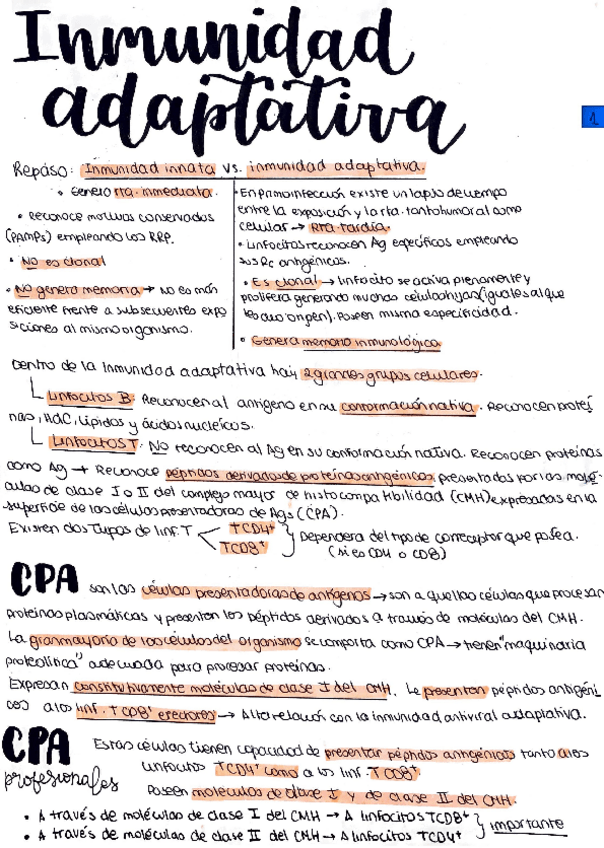 Inmunidad
adaptativa
1
Repaso: Inmunidad innata vs. inmunidad adaptativa.
• Genero rta. inmediata.
• Reconoce motivos conservados
(PAMPs) empleando los RRP.
• No es clonal
• No genera memoria → No es más
eficiente frente a subsecuentes expo
siciones al mismo organismo.
• En primoinfección existe un lapso de tiempo
entre la exposición y la rta. tanto humoral como
celular → Rta tardía.
• Linfocitos reconocen Ag específicos empleando
sus Rc antigénicos.
• Es clonal → linfocito se activa plenamente y
prolifera generando muchas células hijas (iguales al que
les dio origen). Poseen misma especificidad.
• Genera memoria inmunológica
Dentro de la inmunidad adaptativa hay 2 grandes grupos celulares.
Linfocitos B: Reconocen al antigeno en su conformación nativa. Reconocen proteí
nas, HdC, lípidos y ácidos nucleicos.
Linfocitos T: NO reconocen al Ag en su conformación nativa. Reconocen proteínas
como Ag → Reconoce péptidos derivados de proteínas antigénicas presentados por las molé-
culas de clase I o II del complejo mayor de histocompatibilidad (CMH) expresadas en la
superficie de las células presentadoras de Ags (CPA).
Existen dos tipos de linf. T
TCD4+
TCD8+
Dependerá del tipo de correceptor que posea.
(si es CD4 o CD8)
CPA son las células presentadoras de antígenos → son aquellas células que procesan
proteínas plasmáticas y presentan los péptidos derivados a través de moléculas del CMH.
La gran mayoría de las células del organismo se comporta como CPA → tienen "maquinaria
proteolítica" adecuada para procesar proteínas.
Expresan constitutivamente moléculas de clase I del CMH. Le presentan péptidos antigéni
cos a los linf. TCD8+ efectores → Alta relación con la inmunidad antiviral adaptativa.
CPA
profesionales
Estas células tienen capacidad de presentar péptidos antigénicos tanto a los
linfocitos TCD4+ como a los linf. TCD8+
Poseen moléculas de clase I y de clase II del CMH.
• A través de moléculas de clase I del CMH → A linfocitos TCD8+
• A través de moléculas de clase II del CMH → A linfocitos TCD4+
importante